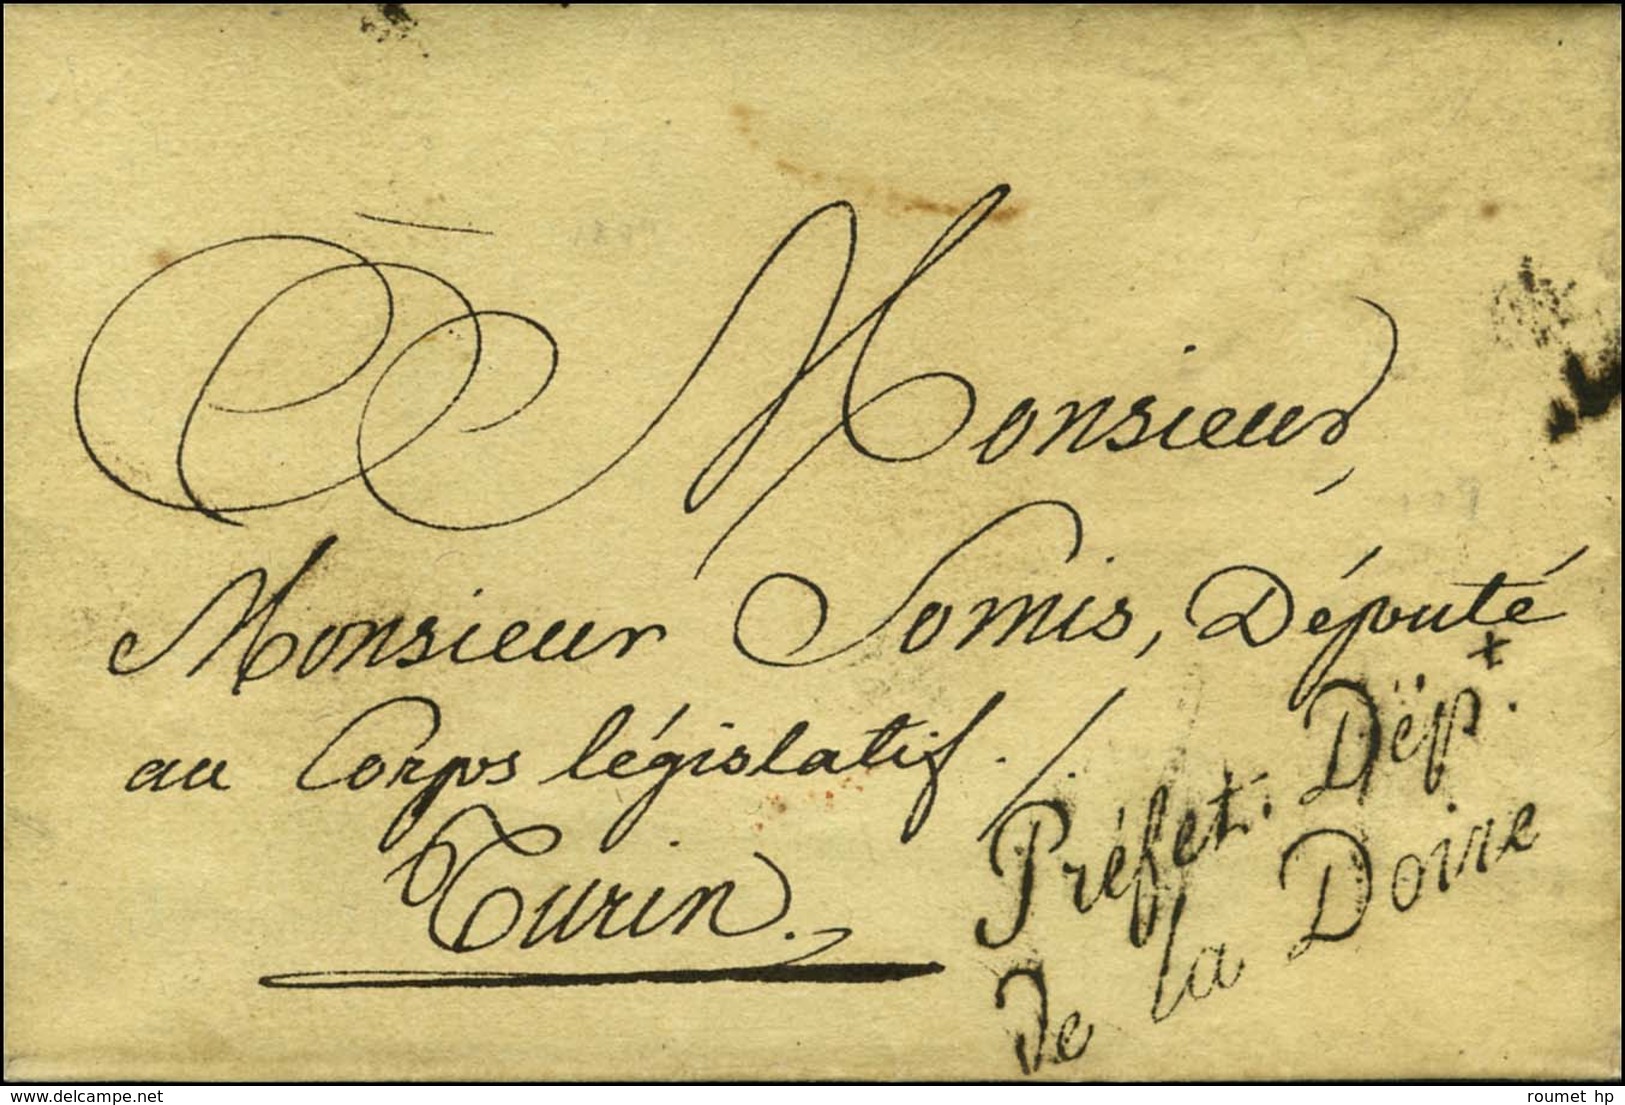 Monsieur,
Monsieur Somis, Député
au Corps législatif. /.
Turin.
Préfet. Dép.t
De la Doire
www.delcampe.net
roumet hp